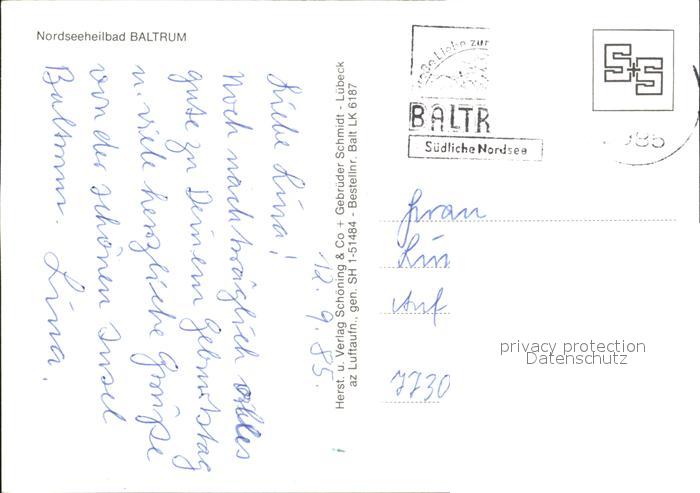 Nordseeheilbad BALTRUM
12. 9. 85.
Liebe Lina!
Noch nachträglich alles
gute zu Deinem Geburtstag
u. viele herzliche Grüße
von der schönen Insel
Baltrum. Lina.
Herst. u. Verlag Schöning & Co + Gebrüder Schmidt - Lübeck
az Luftaufn., gen. SH 1-51484 - Bestellnr. Balt LK 6187
BALTR
Südliche Nordsee
S+S
985
Frau
Lin
Auf
7730
privacy protection
Datenschutz